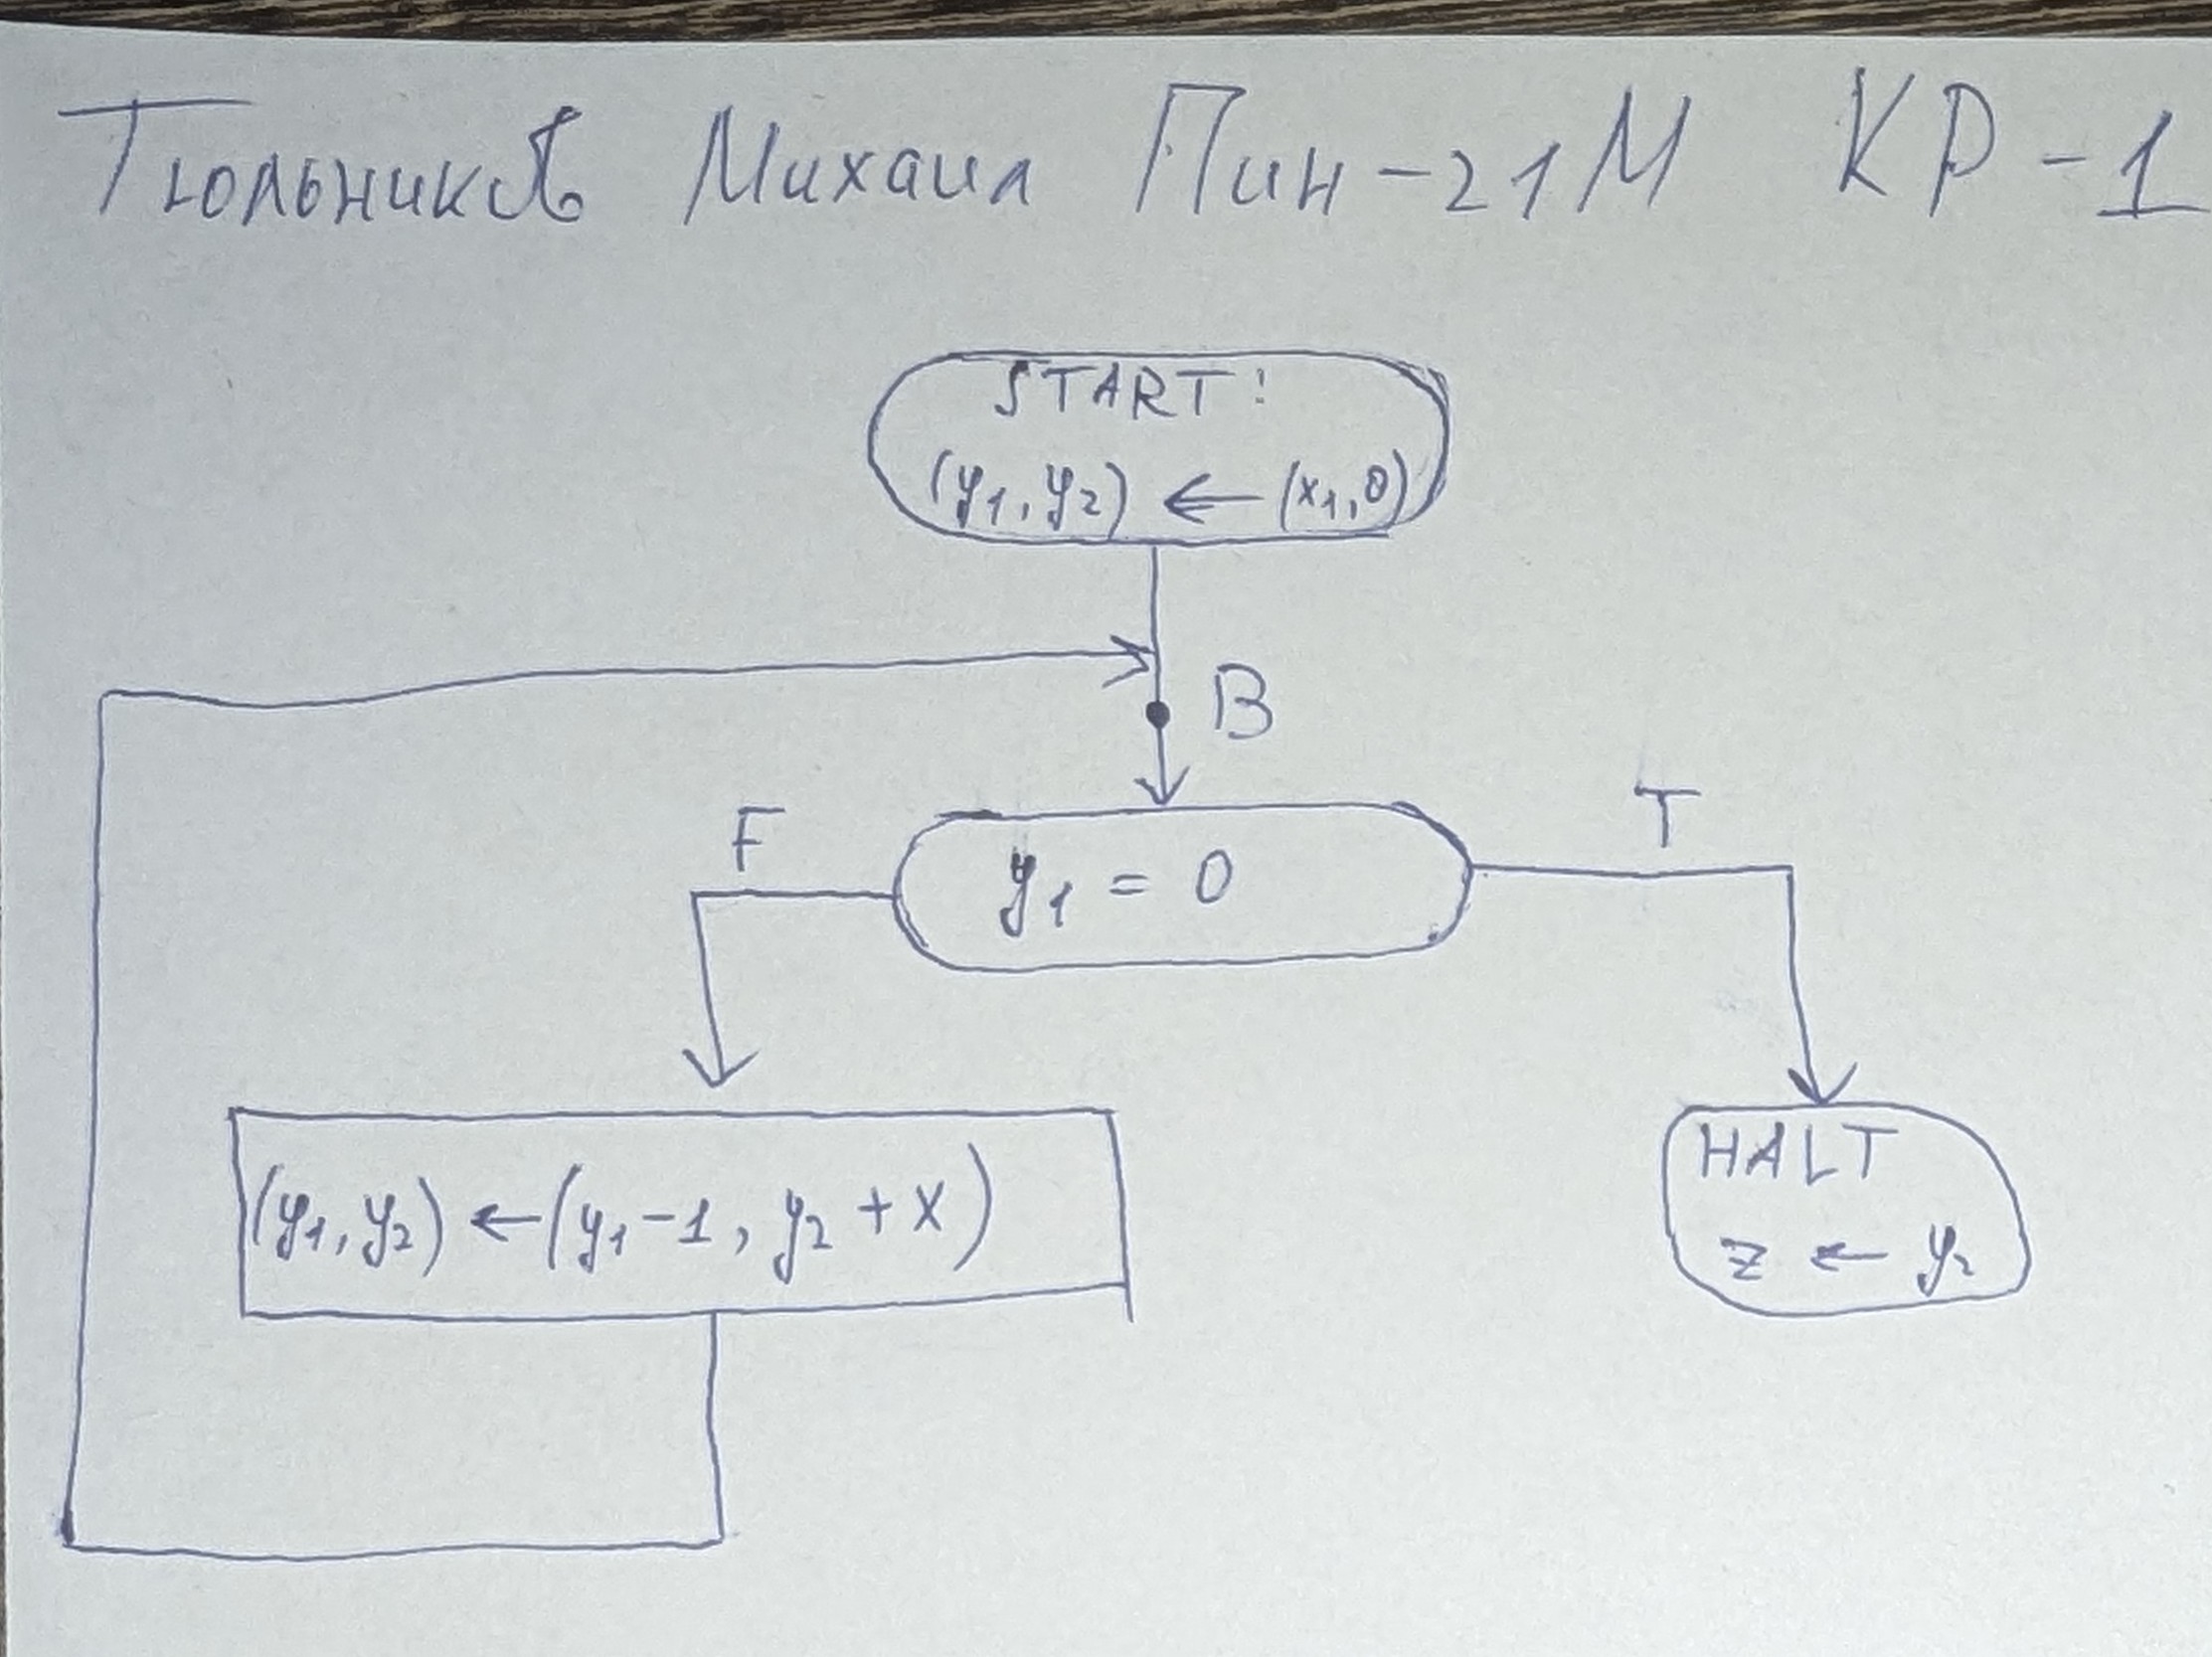 Тюльников Михаил Пин-21М КР-1
START:
(y₁, y₂) ← (x₁, 0)
B
F
T
y₁ = 0
(y₁, y₂) ← (y₁-1, y₂ + x)
HALT
z ← y₂